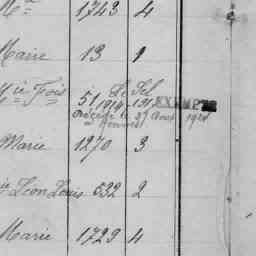 Mie 1743 4
Marie 13 1
Mie Fois 51 Le Sel
1914-191 EXEMPTE
Décédé le 27 Aout 1920
Rennes
Marie 1270 3
Léon Louis 632 2
Marie 1729 4